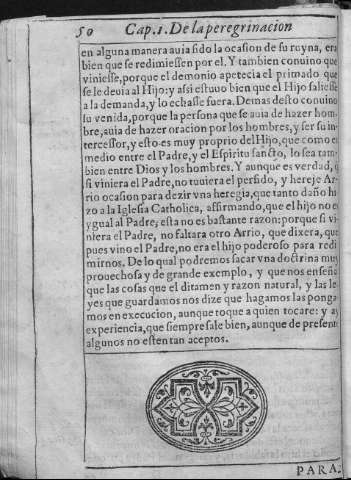 50 Cap.1. De la peregrinacion
en alguna manera auia sido la ocasion de su ruyna, era
bien que se redimiessen por el. Y tambien conuino que
viniesse, porque el demonio apetecia el primado que
se le deuia al Hijo: y assi estuuo bien que el Hijo saliesse
a la demanda, y lo echasse fuera. Demas desto conuino
su venida, porque la persona que se auia de hazer hom-
bre, auia de hazer oracion por los hombres, y ser su in-
tercessor, y esto es muy proprio del Hijo, que como es
medio entre el Padre, y el Espiritu sancto, lo sea tam-
bien entre Dios y los hombres. Y aunque es verdad, q̃
si viniera el Padre, no tuuiera el perfido, y hereje Ar-
rio ocasion para dezir vna heregia, que tanto daño hi
zo a la Iglesia Catholica, affirmando, que el hijo no es
ygual al Padre; esta no es bastante razon: porque si vi-
niera el Padre, no faltara otro Arrio, que dixera, que
pues vino el Padre, no era el hijo poderoso para redi
mirnos. De lo qual podremos sacar vna doctrina muy
prouechosa y de grande exemplo, y que nos enseña
que las cosas que el ditamen y razon natural, y las le-
yes que guardamos nos dize que hagamos las ponga-
mos en execucion, aunque toque a quien tocare: y ay
experiencia, que siempre sale bien, aunque de presente
algunos no esten tan aceptos.
PARA-